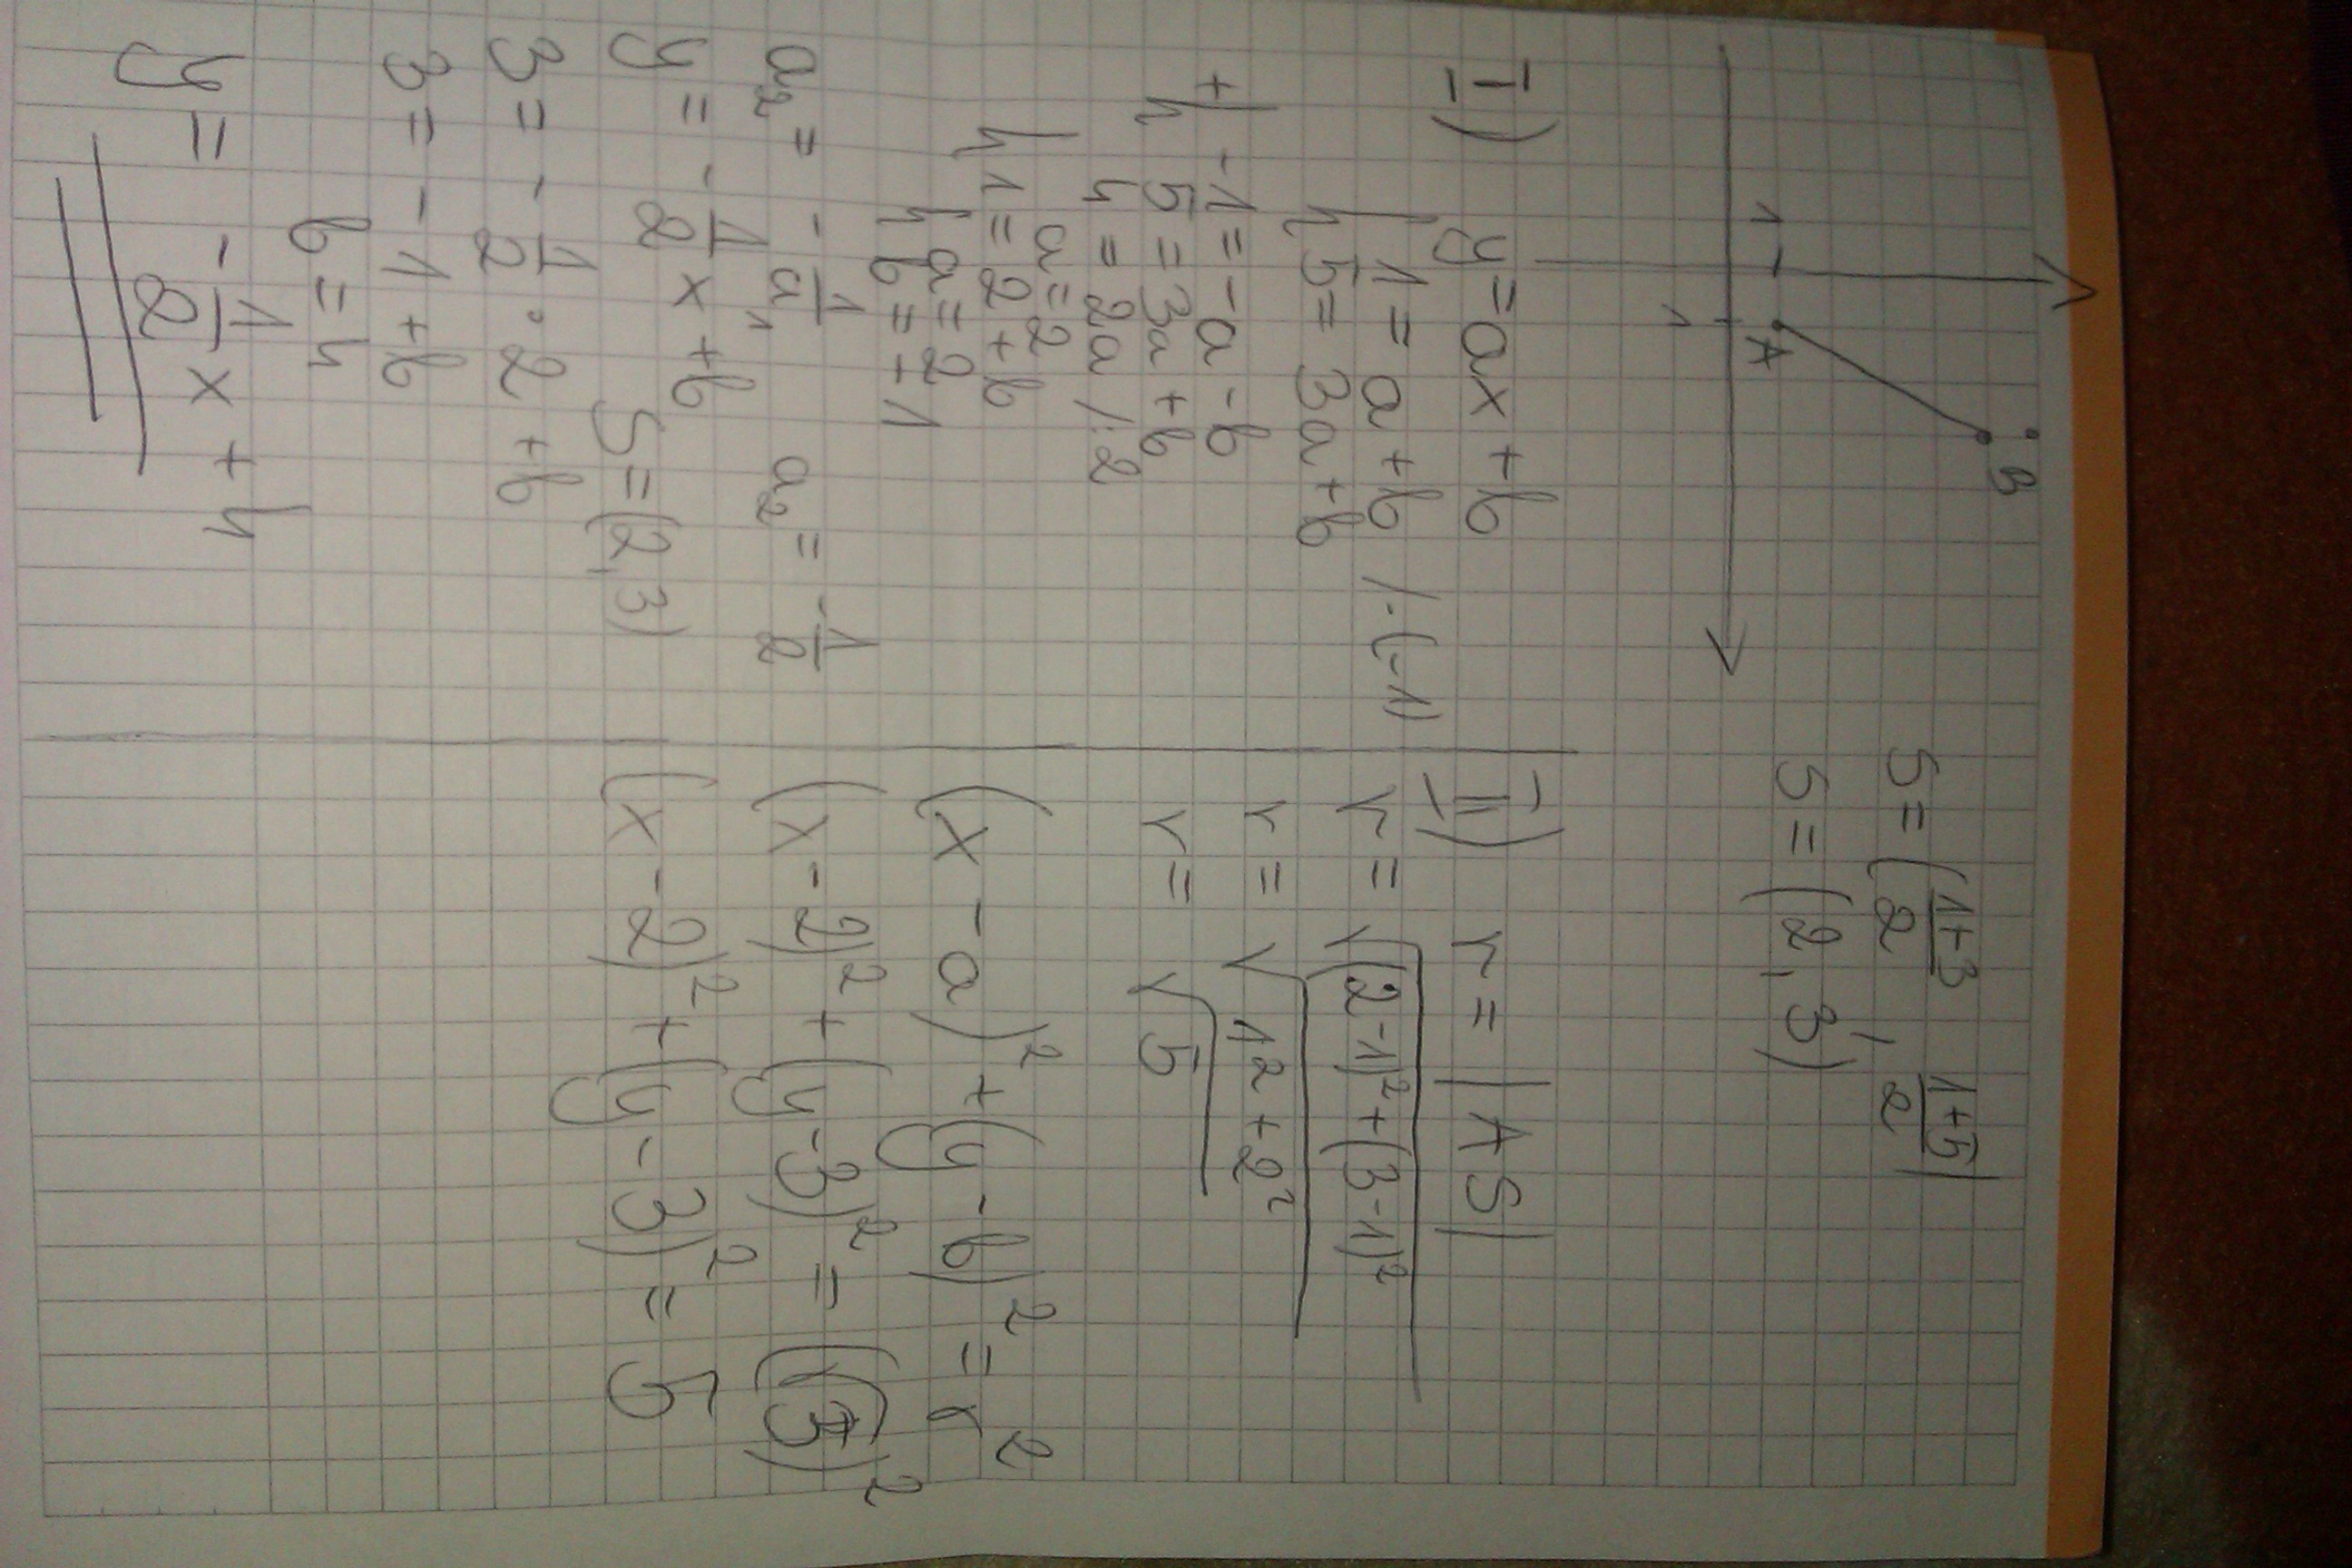 1
1
A
B
S = (1+3/2, 1+5/2)
S = (2, 3)
I)
y = ax + b
{ 1 = a + b /·(-1)
{ 5 = 3a + b
+ { -1 = -a - b
5 = 3a + b
4 = 2a /:2
a = 2
{ 1 = 2 + b
{ a = 2
b = -1
a₂ = -1/a₁ a₂ = -1/2
y = -1/2 x + b
S = (2, 3)
3 = -1/2 · 2 + b
3 = -1 + b
b = 4
y = -1/2 x + 4
II) r = |AS|
r = √(2-1)² + (3-1)²
r = √1² + 2²
r = √5
(x - a)² + (y - b)² = r²
(x - 2)² + (y - 3)² = (√5)²
(x - 2)² + (y - 3)² = 5